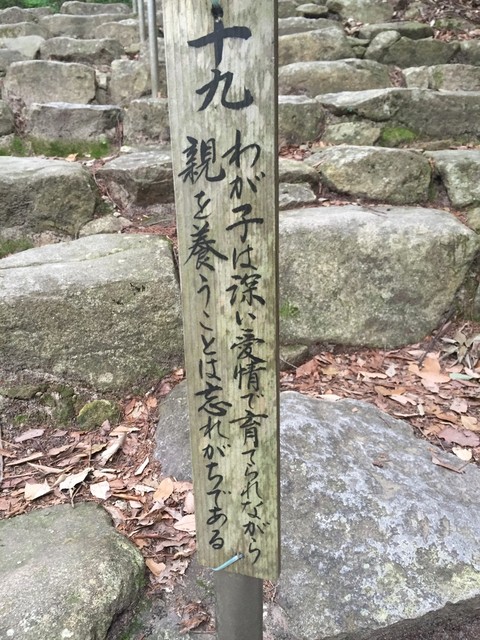 十九
わが子は深い愛情で育てられながら
親を養うことは忘れがちである